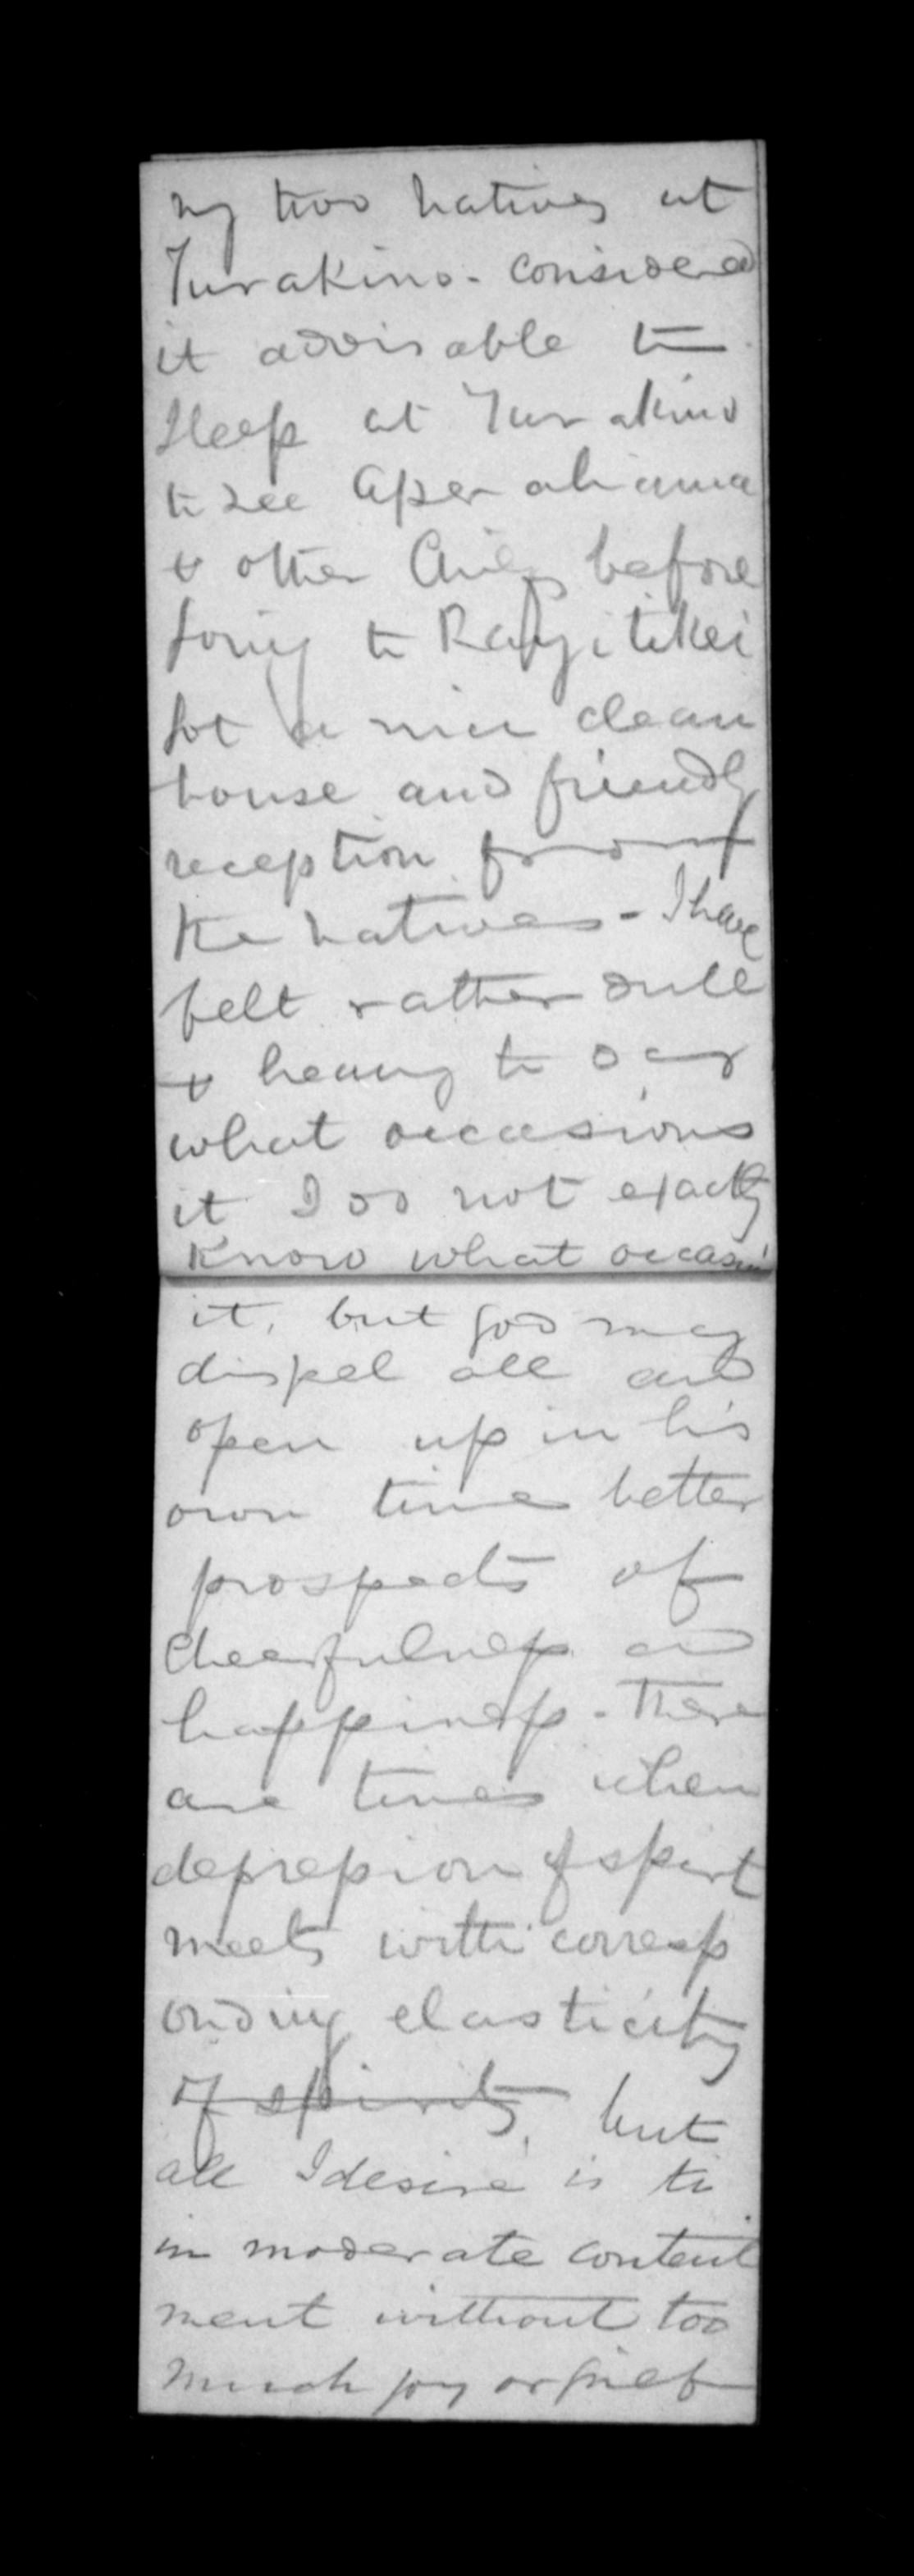 my two natives at
Turakino - considered
it advisable to
sleep at Turakino
to see Aperahama
& other Chiefs before
going to Rangitikei
got a nice clean
house and friendly
reception from
the natives - I have
felt rather dull
& heavy to day
what occasions
it I do not exactly
know what occasion
it, but God may
dispel all and
open up in his
own time better
prospects of
cheerfulness and
happiness - There
are times when
depression of spirit
meets with corresp
onding elasticity
of spirits, but
all I desire is to
in moderate content
ment without too
much joy or grief